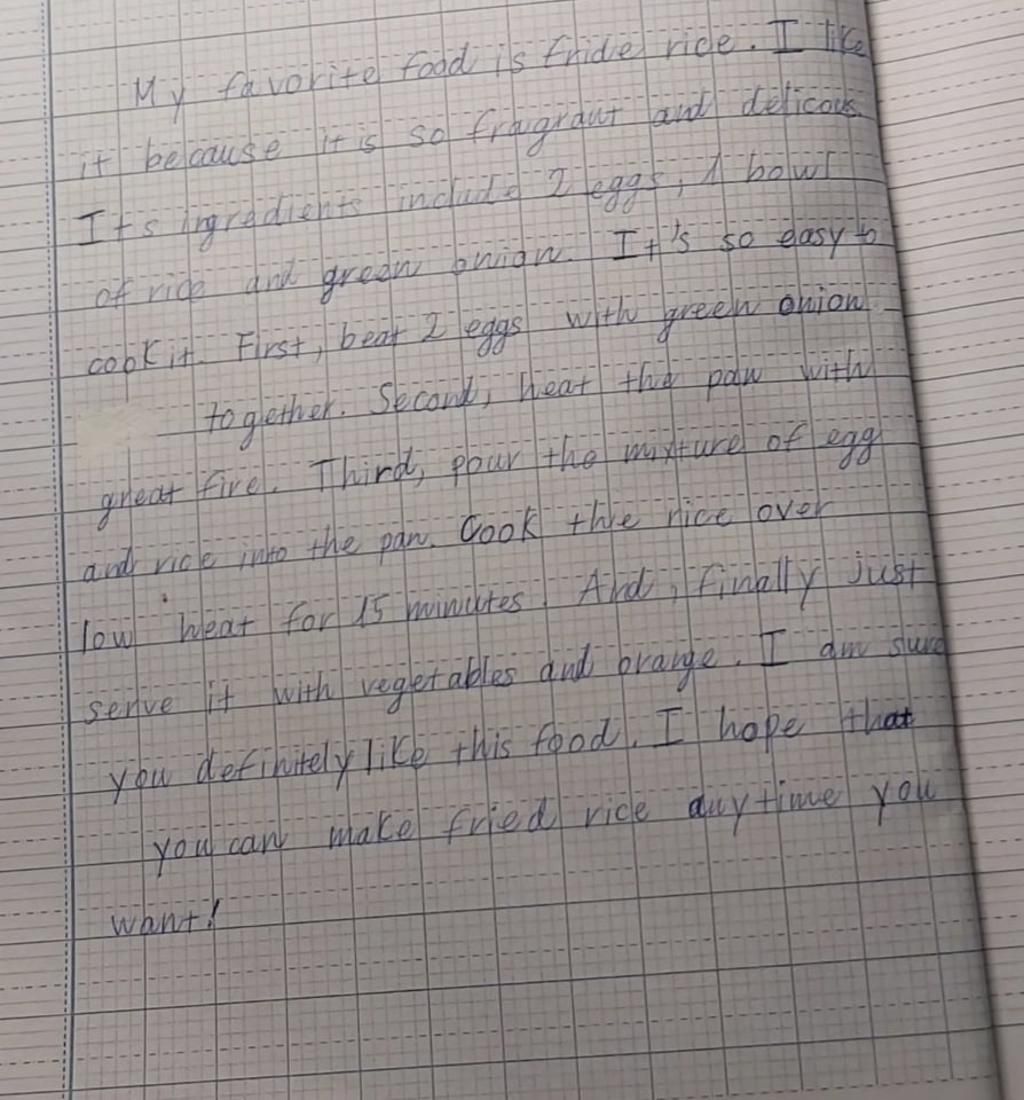 My favorite food is fride rice. I like
it because it is so fragrant and delicous.
Its ingredients include 2 eggs, 1 bowl
of rice and green onion. It's so easy to
cook it. First, beat 2 eggs with green onion
together. Second, heat the pan with
great fire. Third, pour the mixture of egg
and rice into the pan. Cook the rice over
low heat for 15 minutes. And, finally just
serve it with vegetables and orange. I am sure
you definitely like this food. I hope that
you can make fried rice anytime you
want!